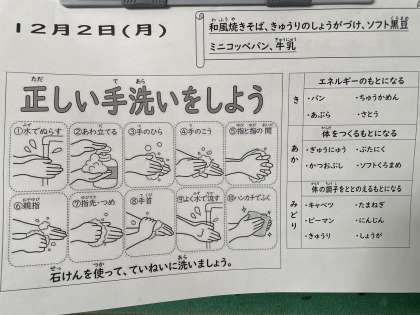 12月2日(月)
和風焼きそば、きゅうりのしょうがづけ、ソフト黒豆
ミニコッペパン、牛乳
正しい手洗いをしよう
①水でぬらす
②あわ立てる
③手のひら
④手のこう
⑤指と指の間
⑥親指
⑦指先・つめ
⑧手首
⑨よく水で流す
⑩ハンカチでふく
石けんを使って、ていねいに洗いましょう。
き
エネルギーのもとになる
・パン ・ちゅうかめん
・あぶら ・さとう
あか
体をつくるもとになる
・ぎゅうにゅう ・ぶたにく
・かつおぶし ・ソフトくろまめ
みどり
体の調子をととのえるもとになる
・キャベツ ・たまねぎ
・ピーマン ・にんじん
・きゅうり ・しょうが